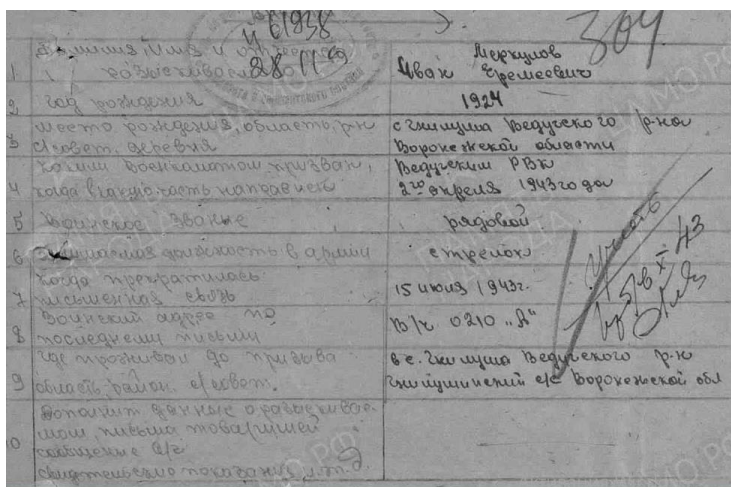 И 61938
28 11 49
304
1 Фамилия, Имя и отчество розыскиваемого
Меркулов
Иван Еремеевич
2 год рождения
1924
3 место рождения, область, р-н
с/совет, деревня
с Гнилуша Ведугского р-на
Воронежской области
4 Каким военкоматом призван,
когда в какую часть направлен
Ведугским РВК
2го апреля 1943 года
5 Воинское звание
рядовой
6 должность в армии
стрелок
7 Когда прекратилась
письменная связь
15 июля 1943 г.
8 Воинский адрес по
последнему письму
В/ч 0210 „А"
9 Где проживал до призыва
область, район, с/совет.
в с. Гнилуша Ведугского р-н
Гнилушинский с/с Воронежской обл
10 Дополнит данные о разыскивае-
мом, письма товарищей
сообщение в/ч
свидетельские показания и.т.д.
43